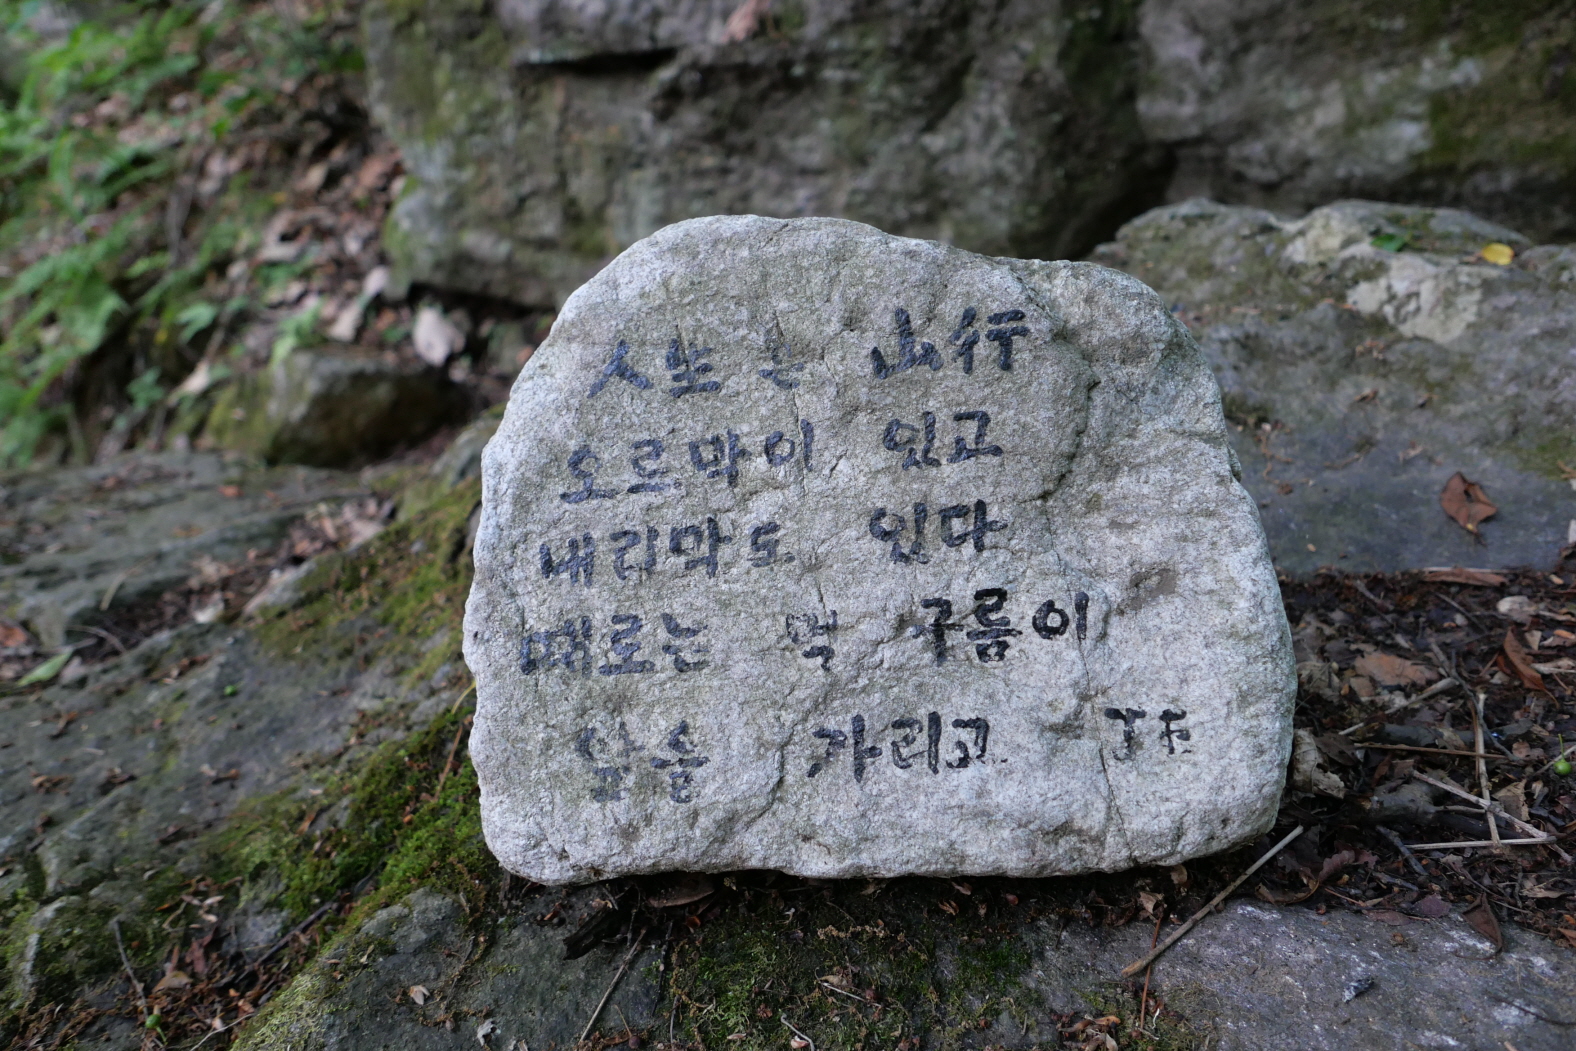 人生은 山行
오르막이 있고
내리막도 있다
때로는 먹 구름이
앞을 가리고